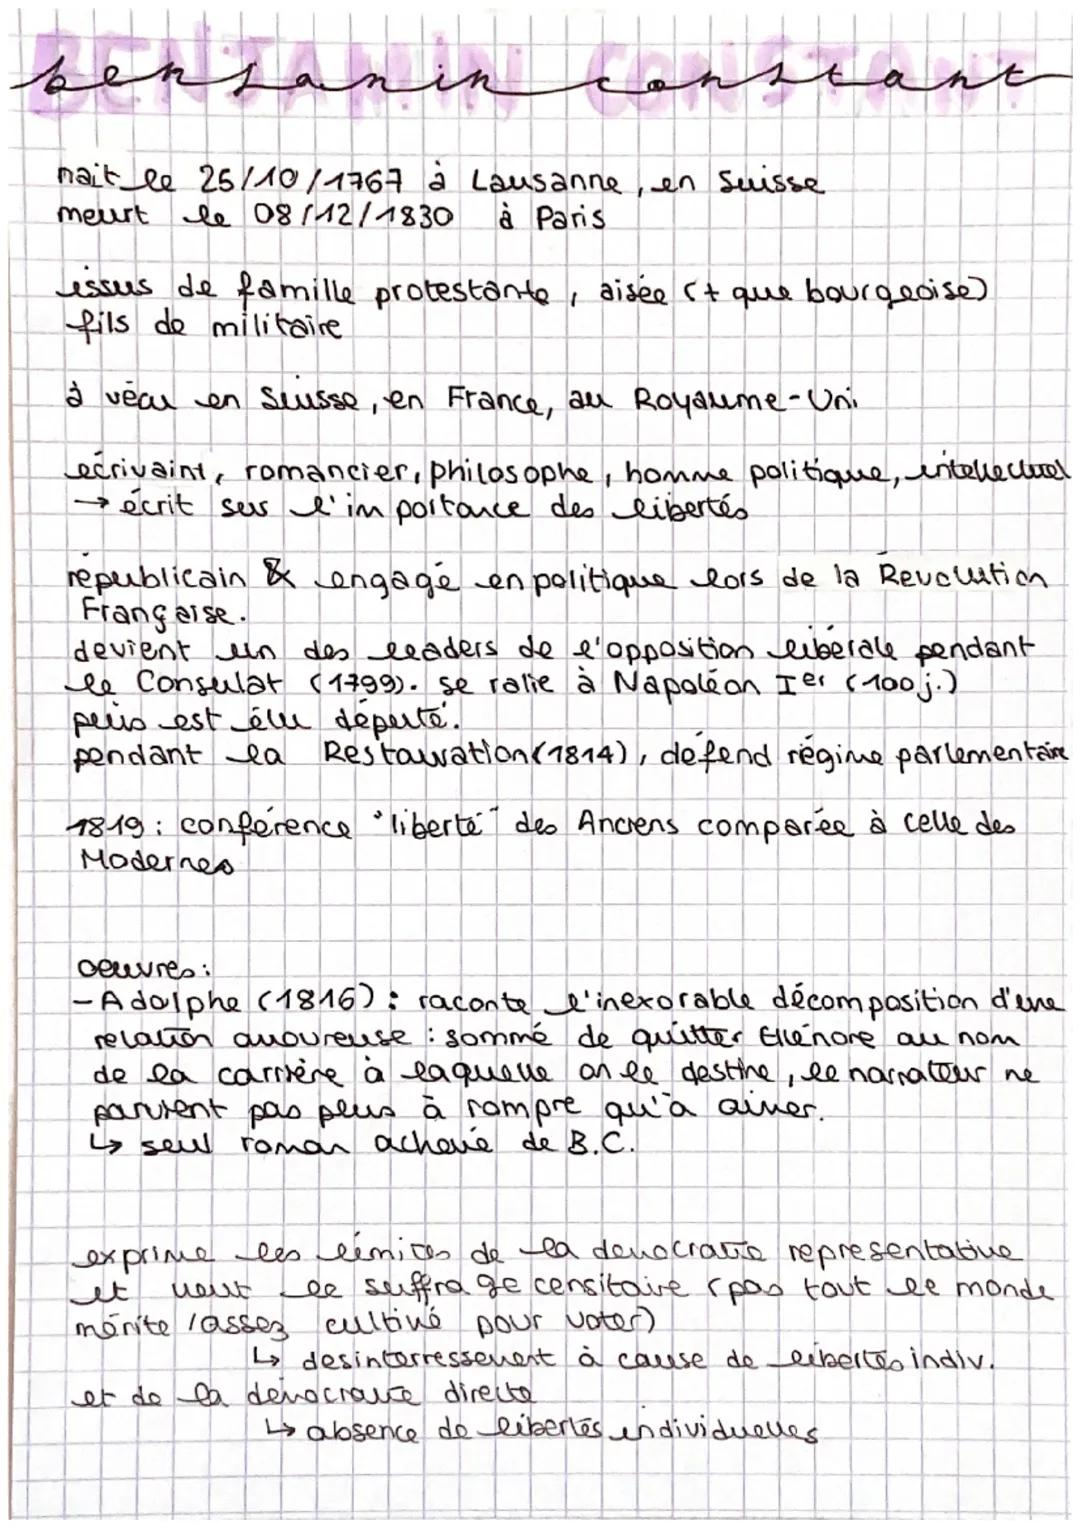 BENJAMIN CONSTANT
benjamin constant
nait le 25/10/1767 à Lausanne, en Suisse
meurt le 08/12/1830 à Paris
issus de famille protestante, aisée (+ que bourgeoise)
fils de militaire
à vécu en Suisse, en France, au Royaume-Uni
écrivaint, romancier, philosophe, homme politique, intellectuel
→ écrit sur l'importance des libertés
républicain & engagé en politique lors de la Revolution
Française.
devient un des leaders de l'opposition libérale pendant
le Consulat (1799). se ralie à Napoléon Ier (100j.)
puis est élu député.
pendant la Restauration (1814), défend régime parlementaire
1819 : conférence "liberté" des Anciens comparée à celle des
Modernes
oeuvres :
- Adolphe (1816) : raconte l'inexorable décomposition d'une
relation amoureuse : sommé de quitter Ellénore au nom
de la carrière à laquelle on le destine, le narrateur ne
parvient pas plus à rompre qu'à aimer.
↳ seul roman achevé de B.C.
exprime les limites de la démocratie représentative
et veut le suffrage censitaire (pas tout le monde
mérite / assez cultivé pour voter)
↳ desinterressement à cause de libertés indiv.
et de la démocratie directe
↳ absence de libertés individuelles